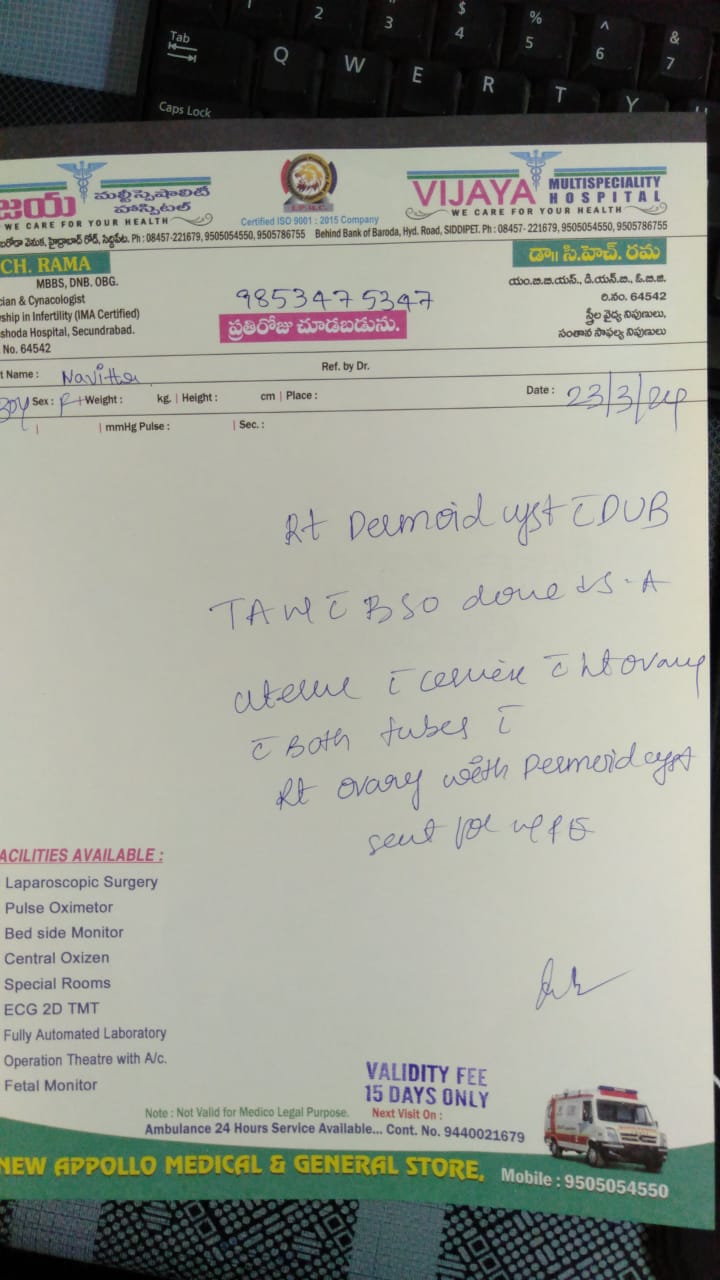 Tab
Caps Lock
Q W E R T Y
2 3 $ 4 % 5 ^ 6 & 7
జయ మల్టీస్పెషాలిటీ హాస్పిటల్
WE CARE FOR YOUR HEALTH
Certified ISO 9001 : 2015 Company
VIJAYA MULTISPECIALITY HOSPITAL
WE CARE FOR YOUR HEALTH
బరోడా వెనుక, హైద్రాబాద్ రోడ్, సిద్దిపేట. Ph : 08457-221679, 9505054550, 9505786755 Behind Bank of Baroda, Hyd. Road, SIDDIPET. Ph : 08457- 221679, 9505054550, 9505786755
CH. RAMA
MBBS, DNB. OBG.
cian & Cynacologist
rship in Infertility (IMA Certified)
shoda Hospital, Secundrabad.
No. 64542
9853475347
ప్రతిరోజు చూడబడును.
డా॥ సి.హెచ్. రమ
యం.బి.బి.యస్, డి.యన్.బి., ఓ.బి.జి.
రి.నం. 64542
స్త్రీల వైద్య నిపుణులు,
సంతాన సాఫల్య నిపుణులు
t Name : Ref. by Dr.
30y Sex : F Weight : kg. | Height : cm | Place : Date : 23/3/24
| | mmHg Pulse : | Sec. :
Rt Dermoid cyst c̄ DUB
TAH c̄ BSO done S.A
uterus c̄ cervix c̄ ovary
c̄ Both tubes c̄
Rt ovary with Dermoid cyst
sent for HPE
ACILITIES AVAILABLE :
Laparoscopic Surgery
Pulse Oximetor
Bed side Monitor
Central Oxizen
Special Rooms
ECG 2D TMT
Fully Automated Laboratory
Operation Theatre with A/c.
Fetal Monitor
VALIDITY FEE
15 DAYS ONLY
Note : Not Valid for Medico Legal Purpose. Next Visit On :
Ambulance 24 Hours Service Available... Cont. No. 9440021679
NEW APPOLLO MEDICAL & GENERAL STORE, Mobile : 9505054550